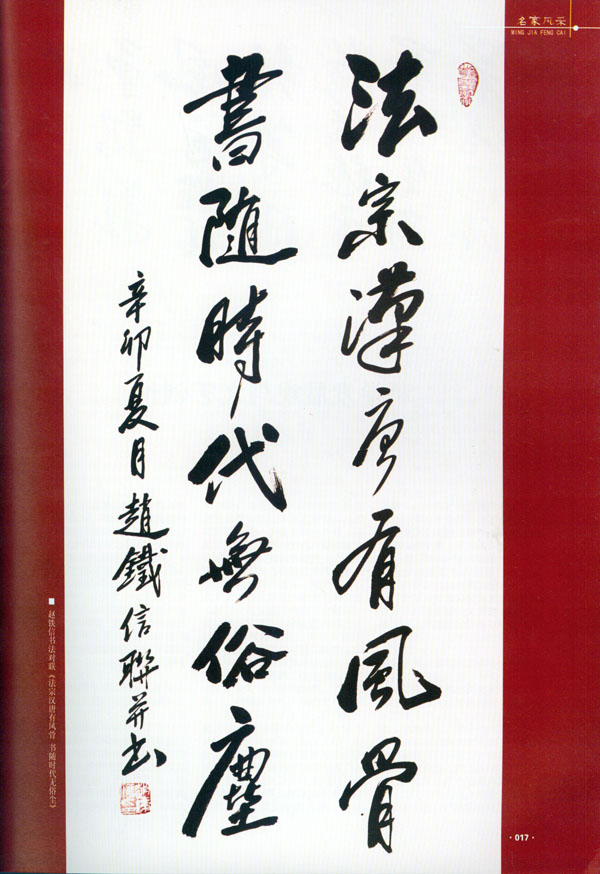 名家风采
MING JIA FENG CAI
法宗漢唐有風骨
書隨時代無俗塵
辛卯夏月趙鐵信聯并书
■ 赵铁信书法对联《法宗汉唐有风骨 书随时代无俗尘》
·017·